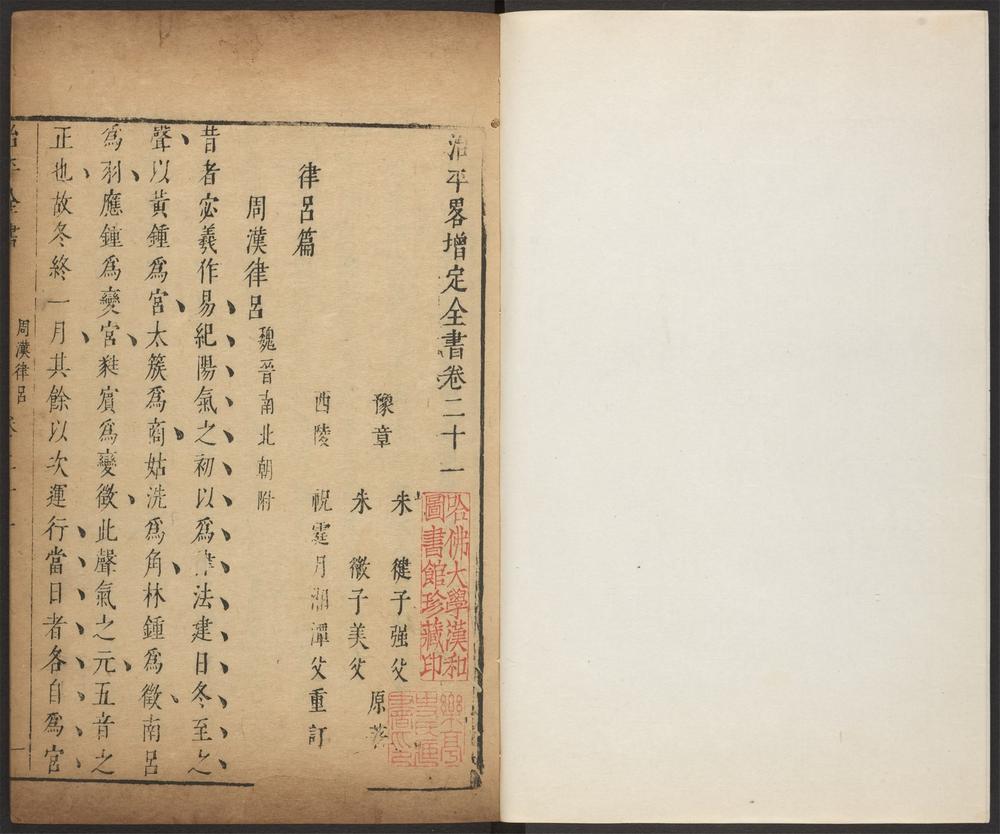 治平畧增定全書卷二十一
哈佛大學漢和
圖書館珍藏印
豫章
朱 健子强父
朱 徽子美父
原著
西陵 祝霆月湘潭父重訂
律呂篇
周漢律呂 魏晉南北朝附
昔者宓羲作易紀陽氣之初以爲律法建日冬至之
聲以黃鍾爲宮太簇爲商姑洗爲角林鍾爲徵南呂
爲羽應鍾爲變宮蕤賓爲變徵此聲氣之元五音之
正也故冬終一月其餘以次運行當日者各自爲宮
周漢律呂